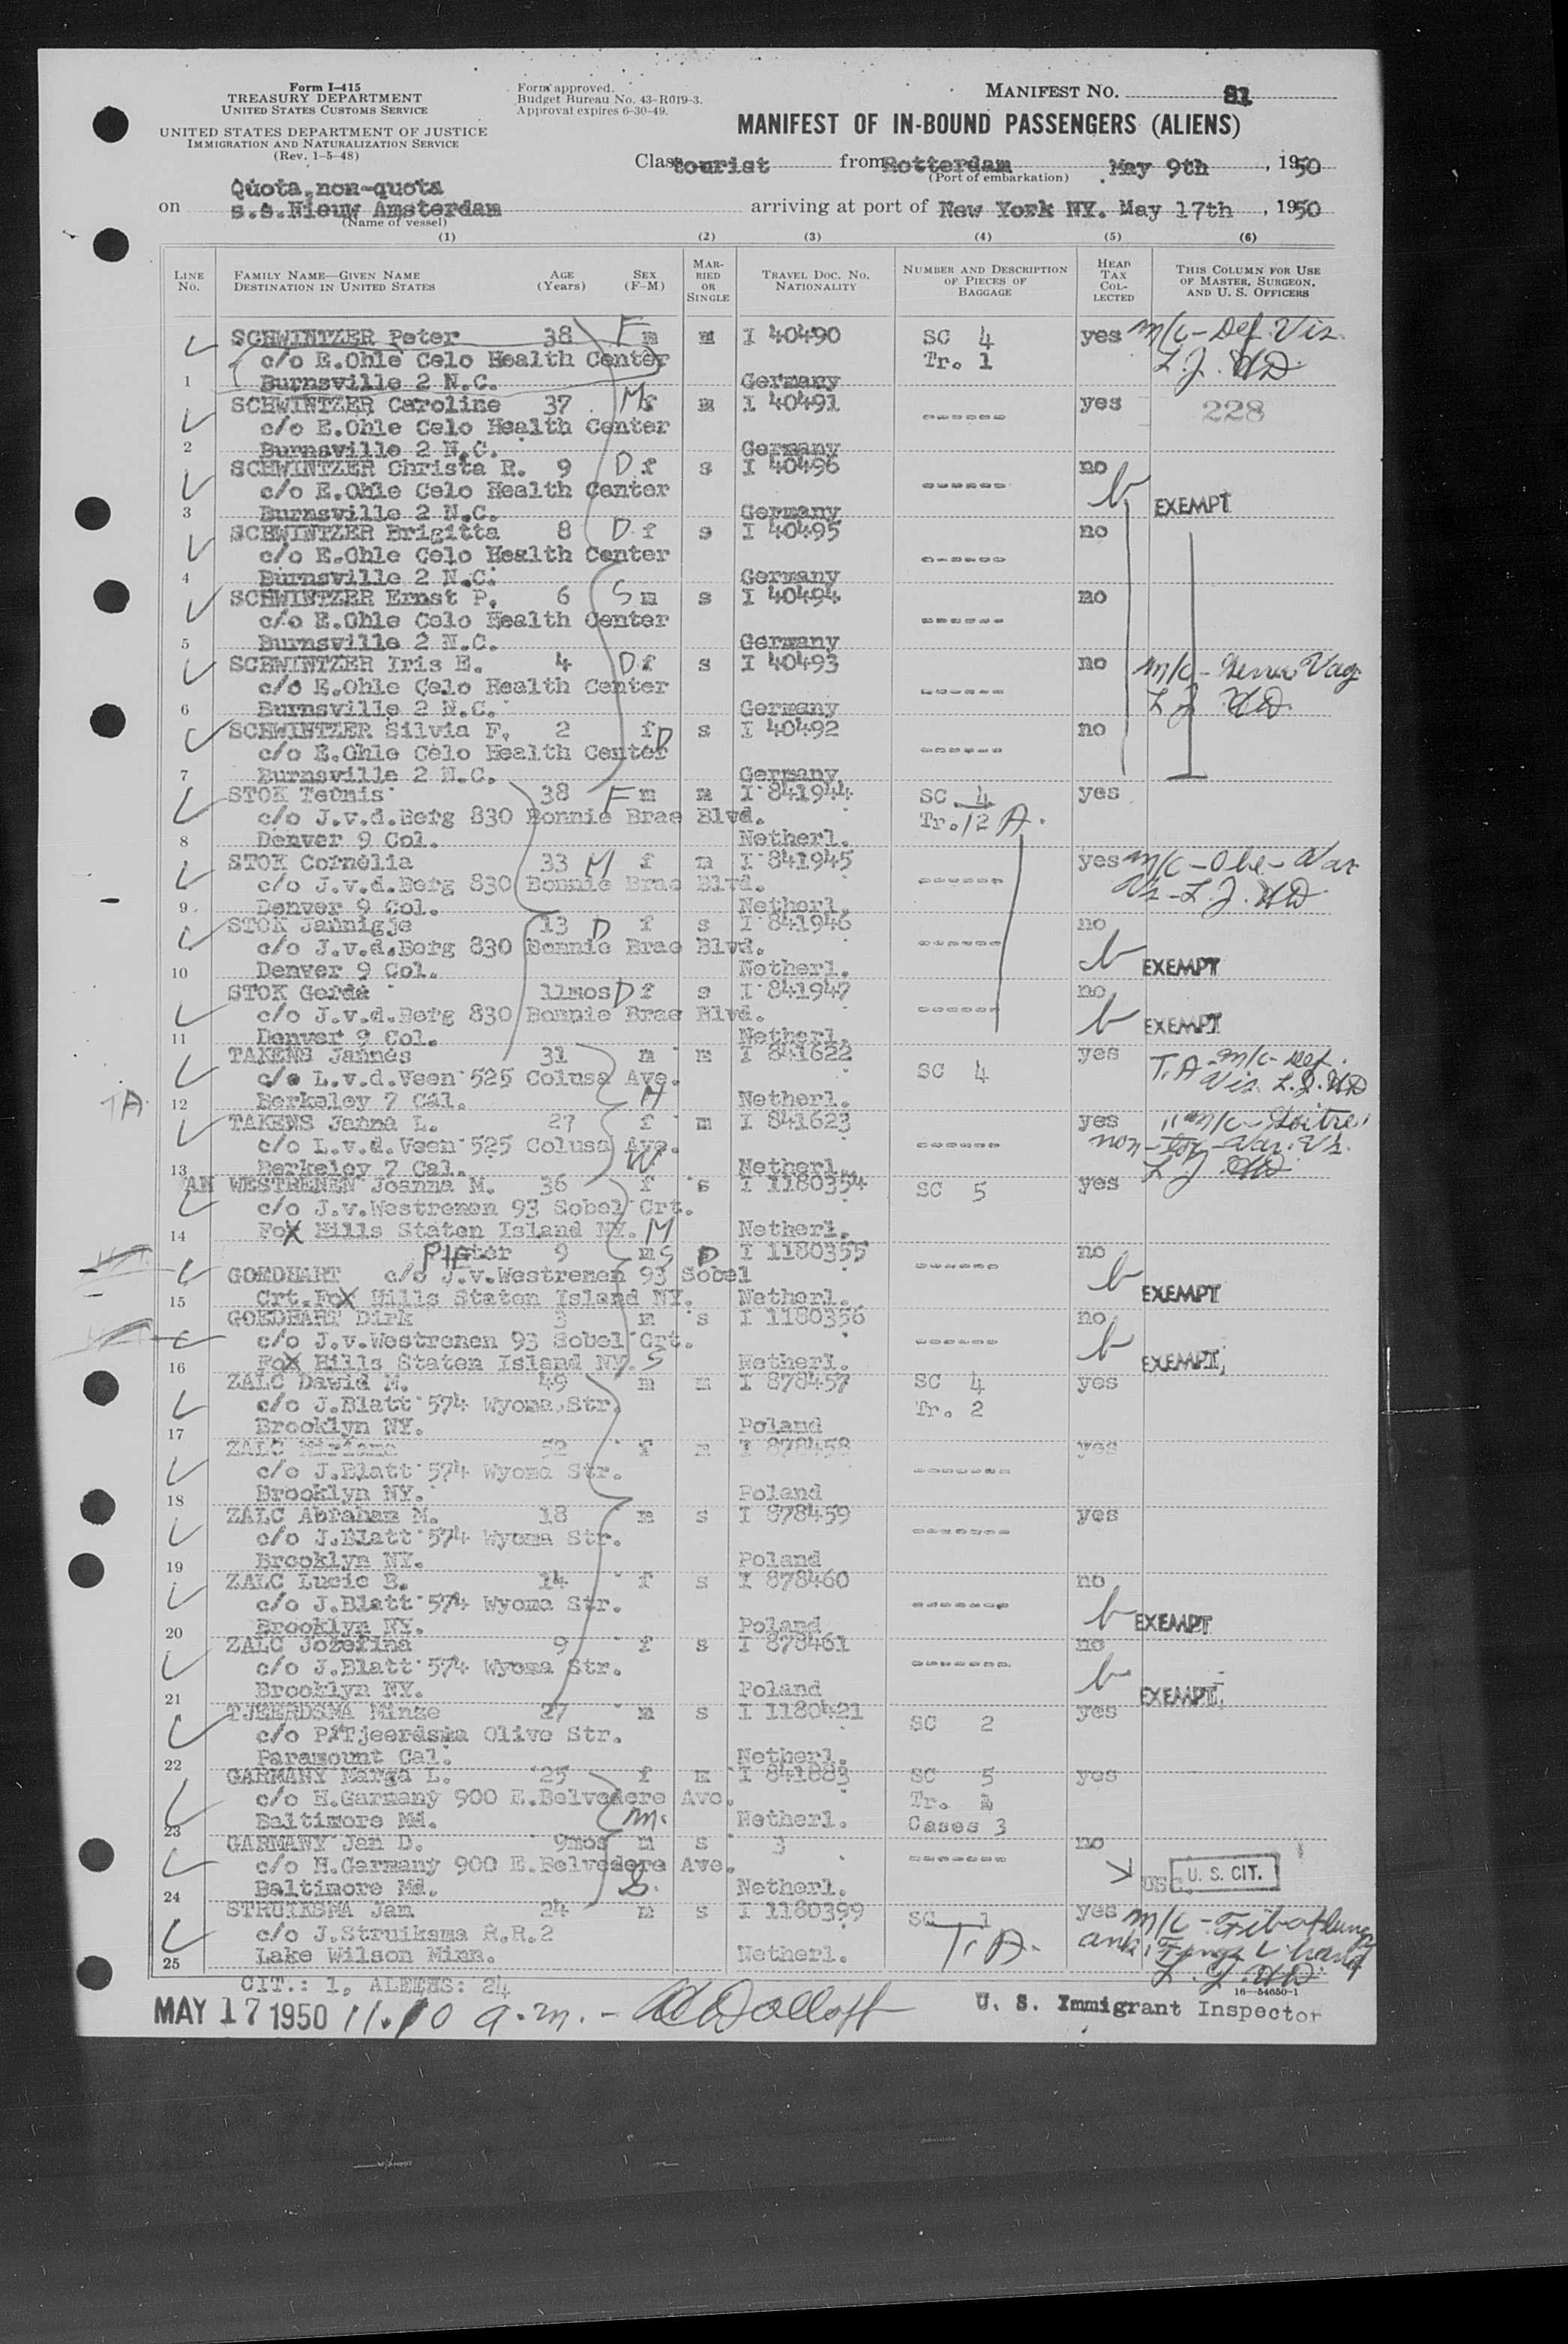 Form I-415
TREASURY DEPARTMENT
UNITED STATES CUSTOMS SERVICE
UNITED STATES DEPARTMENT OF JUSTICE
IMMIGRATION AND NATURALIZATION SERVICE
(Rev. 1-5-48)
Form approved.
Budget Bureau No. 43-R019-3.
Approval expires 6-30-49.
MANIFEST NO. 81
MANIFEST OF IN-BOUND PASSENGERS (ALIENS)
Class tourist from Rotterdam May 9th, 1950
(Port of embarkation)
Quota, non-quota
on s.s. Nieuw Amsterdam arriving at port of New York NY. May 17th, 1950
(Name of vessel)
(1) (2) (3) (4) (5) (6)
LINE No. FAMILY NAME—GIVEN NAME DESTINATION IN UNITED STATES AGE (Years) SEX (F-M) MARRIED OR SINGLE TRAVEL DOC. NO. NATIONALITY NUMBER AND DESCRIPTION OF PIECES OF BAGGAGE HEAD TAX COLLECTED THIS COLUMN FOR USE OF MASTER, SURGEON, AND U. S. OFFICERS
SCHWINTZER Peter 38 F m m I 40490 SC 4 yes m/c - Def. Vis.
c/o E.Ohle Celo Health Center Tr. 1 L.J. MD
1 Burnsville 2 N.C. Germany
SCHWINTZER Caroline 37 M f m I 40491 yes 228
c/o E.Ohle Celo Health Center ------
2 Burnsville 2 N.C. Germany
SCHWINTZER Christa R. 9 D f s I 40496 no
c/o E.Ohle Celo Health Center ------ EXEMPT
3 Burnsville 2 N.C. Germany
SCHWINTZER Brigitta 8 D f s I 40495 no
c/o E.Ohle Celo Health Center ------
4 Burnsville 2 N.C. Germany
SCHWINTZER Ernst P. 6 S m s I 40494 no
c/o E.Ohle Celo Health Center ------
5 Burnsville 2 N.C. Germany
SCHWINTZER Iris E. 4 D f s I 40493 no m/c -
c/o E.Ohle Celo Health Center ------ L J MD
6 Burnsville 2 N.C. Germany
SCHWINTZER Silvia F. 2 f D s I 40492 no
c/o E.Ohle Celo Health Center ------
7 Burnsville 2 N.C. Germany
STOK Teunis 38 F m m I 841944 SC 4 yes
c/o J.v.d.Berg 830 Bonnie Brae Blvd. Tr. 12 A.
8 Denver 9 Col. Netherl.
STOK Cornelia 33 M f m I 841945 yes m/c - Obe - Var
c/o J.v.d.Berg 830 Bonnie Brae Blvd. ------ Vs - L.J. MD
9 Denver 9 Col. Netherl.
STOK Jannigje 13 D f s I 841946 no
c/o J.v.d.Berg 830 Bonnie Brae Blvd. ------
10 Denver 9 Col. Netherl. EXEMPT
STOK Gerda 11mos D f s I 841947 no
c/o J.v.d.Berg 830 Bonnie Brae Blvd. ------ EXEMPT
11 Denver 9 Col. Netherl.
TAKENS Jannes 31 m m I 841622 yes T.A - m/c - Def.
c/o L.v.d.Veen 525 Colusa Ave. SC 4 Vis. L.J. MD
TA 12 Berkeley 7 Cal. H Netherl.
TAKENS Janna L. 27 f m I 841623 yes " m/c - Goitre
c/o L.v.d.Veen 525 Colusa Ave. ------ non-tox - Var. Vs.
13 Berkeley 7 Cal. W Netherl. L J MD
VAN WESTRENEN Joanna M. 36 f s I 1180354 SC 5 yes
c/o J.v.Westrenen 93 Sobel Crt.
14 Fox Hills Staten Island NY. M Netherl.
PIeter 9 m S I 1180355 no
GOEDHART c/o J.v.Westrenen 93 Sobel ------
15 Crt.Fox Hills Staten Island NY. Netherl. EXEMPT
GOEDHART Dirk 3 m s I 1180356 no
c/o J.v.Westrenen 93 Sobel Crt. ------
16 Fox Hills Staten Island NY. S Netherl. EXEMPT
ZALC Dawid M. 49 m m I 878457 SC 4 yes
c/o J.Blatt 574 Wyoma Str. Tr. 2
17 Brooklyn NY. Poland
ZALC Miriama 52 f m I 878458 yes
c/o J.Blatt 574 Wyoma Str. ------
18 Brooklyn NY. Poland
ZALC Abraham M. 18 m s I 878459 yes
c/o J.Blatt 574 Wyoma Str. ------
19 Brooklyn NY. Poland
ZALC Lucie B. 14 f s I 878460 no
c/o J.Blatt 574 Wyoma Str. ------
20 Brooklyn NY. Poland EXEMPT
ZALC Jozefina 9 f s I 878461 no
c/o J.Blatt 574 Wyoma Str. ------
21 Brooklyn NY. Poland EXEMPT
TJEERDSMA Minze 27 m s I 1180421 SC 2 yes
c/o P.Tjeerdsma Olive Str.
22 Paramount Cal. Netherl.
GARMANY Marga L. 25 f m I 841883 SC 5 yes
c/o H.Garmany 900 E.Belvedere Ave. Tr.
23 Baltimore Md. m. Netherl. Cases 3
GARMANY Jan D. 9mos m s 3 no
c/o H.Garmany 900 E.Belvedere Ave. ------ U. S. CIT.
24 Baltimore Md. S. Netherl. USC.
STRUIKSMA Jan 24 m s I 1180399 SC 1 yes m/c -
c/o J.Struiksma R.R.2 T.A.
25 Lake Wilson Minn. Netherl. L. J. MD
CIT.: 1, ALIENS: 24
16—54650-1
MAY 17 1950 11.10 a.m. - U. S. Immigrant Inspector